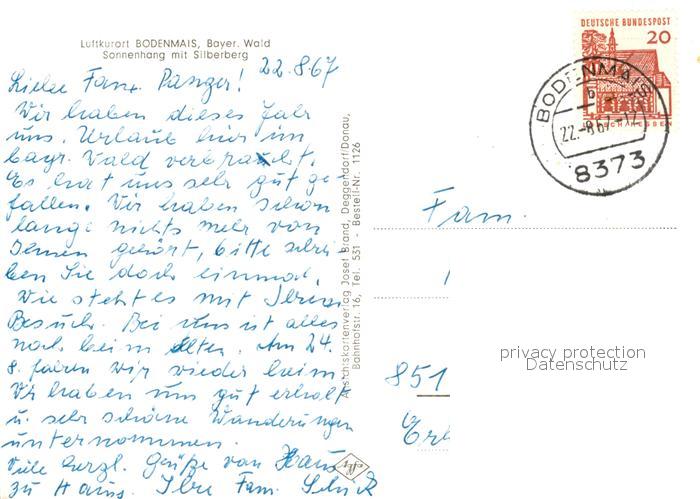 Luftkurort BODENMAIS, Bayer. Wald
Sonnenhang mit Silberberg
22.8.67
Liebe Fam. Panzer!
Wir haben dieses Jahr
uns. Urlaub hier im
bayr. Wald verbracht.
Es hat uns sehr gut ge-
fallen. Wir haben schon
lange nichts mehr von
Ihnen gehört, bitte schrei-
ben Sie doch einmal.
Wie steht es mit Ihrem
Besuch. Bei uns ist alles
noch beim alten. Am 24.
8. fahren wir wieder heim
Wir haben uns gut erholt
u. sehr schöne Wanderungen
unternommen.
Viele herzl. Grüße von Haus
zu Haus. Ihre Fam.
Ansichtskartenverlag Josef Brand, Deggendorf/Donau,
Bahnhofstr. 16, Tel. 531 - Bestell-Nr. 1126
DEUTSCHE BUNDESPOST
20
BODENMAIS
b
22.-8.67-17
8373
Fam.
851
privacy protection
Datenschutz